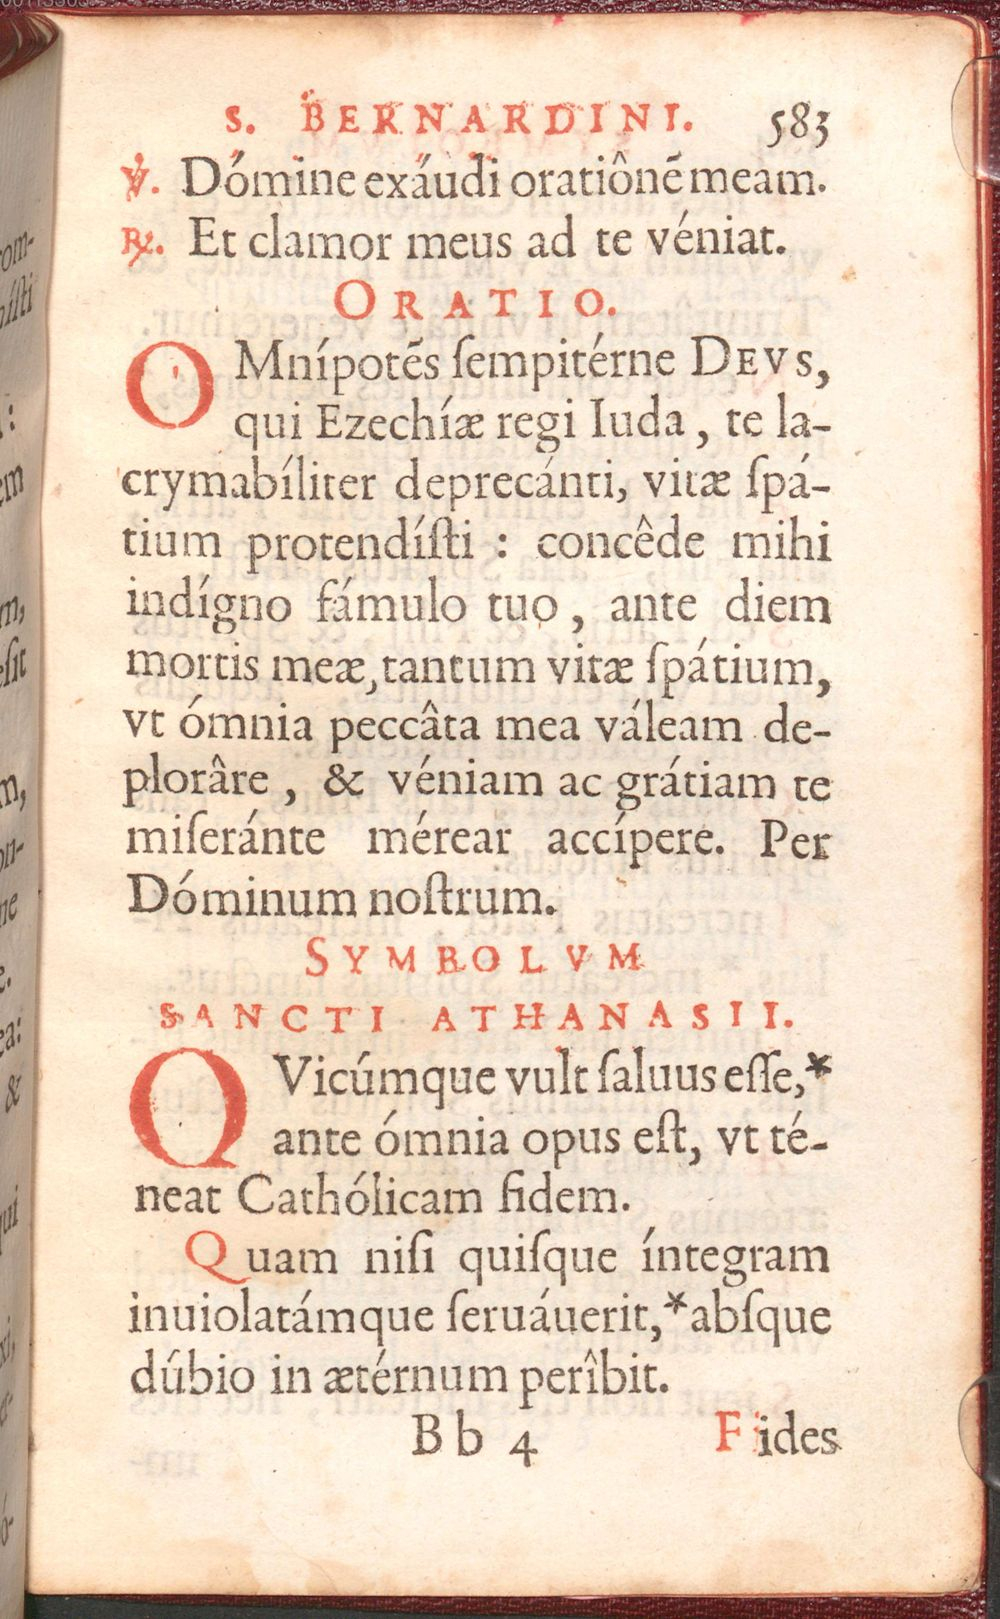 S. BERNARDINI. 583
℣. Dómine exáudi oratiônē meam.
℟. Et clamor meus ad te véniat.
ORATIO.
OMnípotēs ſempitérne DEVS,
qui Ezechíæ regi Iuda, te la-
crymabíliter deprecánti, vitæ ſpá-
tium protendíſti : concêde mihi
indígno fámulo tuo, ante diem
mortis meæ, tantum vitæ ſpátium,
vt ómnia peccâta mea váleam de-
plorâre, & véniam ac grátiam te
miſeránte mérear accípere. Per
Dóminum noſtrum.
SYMBOLVM
SANCTI ATHANASII.
QVicúmque vult ſaluus eſſe,*
ante ómnia opus eſt, vt té-
neat Cathólicam fidem.
Quam niſi quiſque íntegram
inuiolatámque ſeruáuerit,* abſque
dúbio in ætérnum perîbit.
Bb 4 Fides